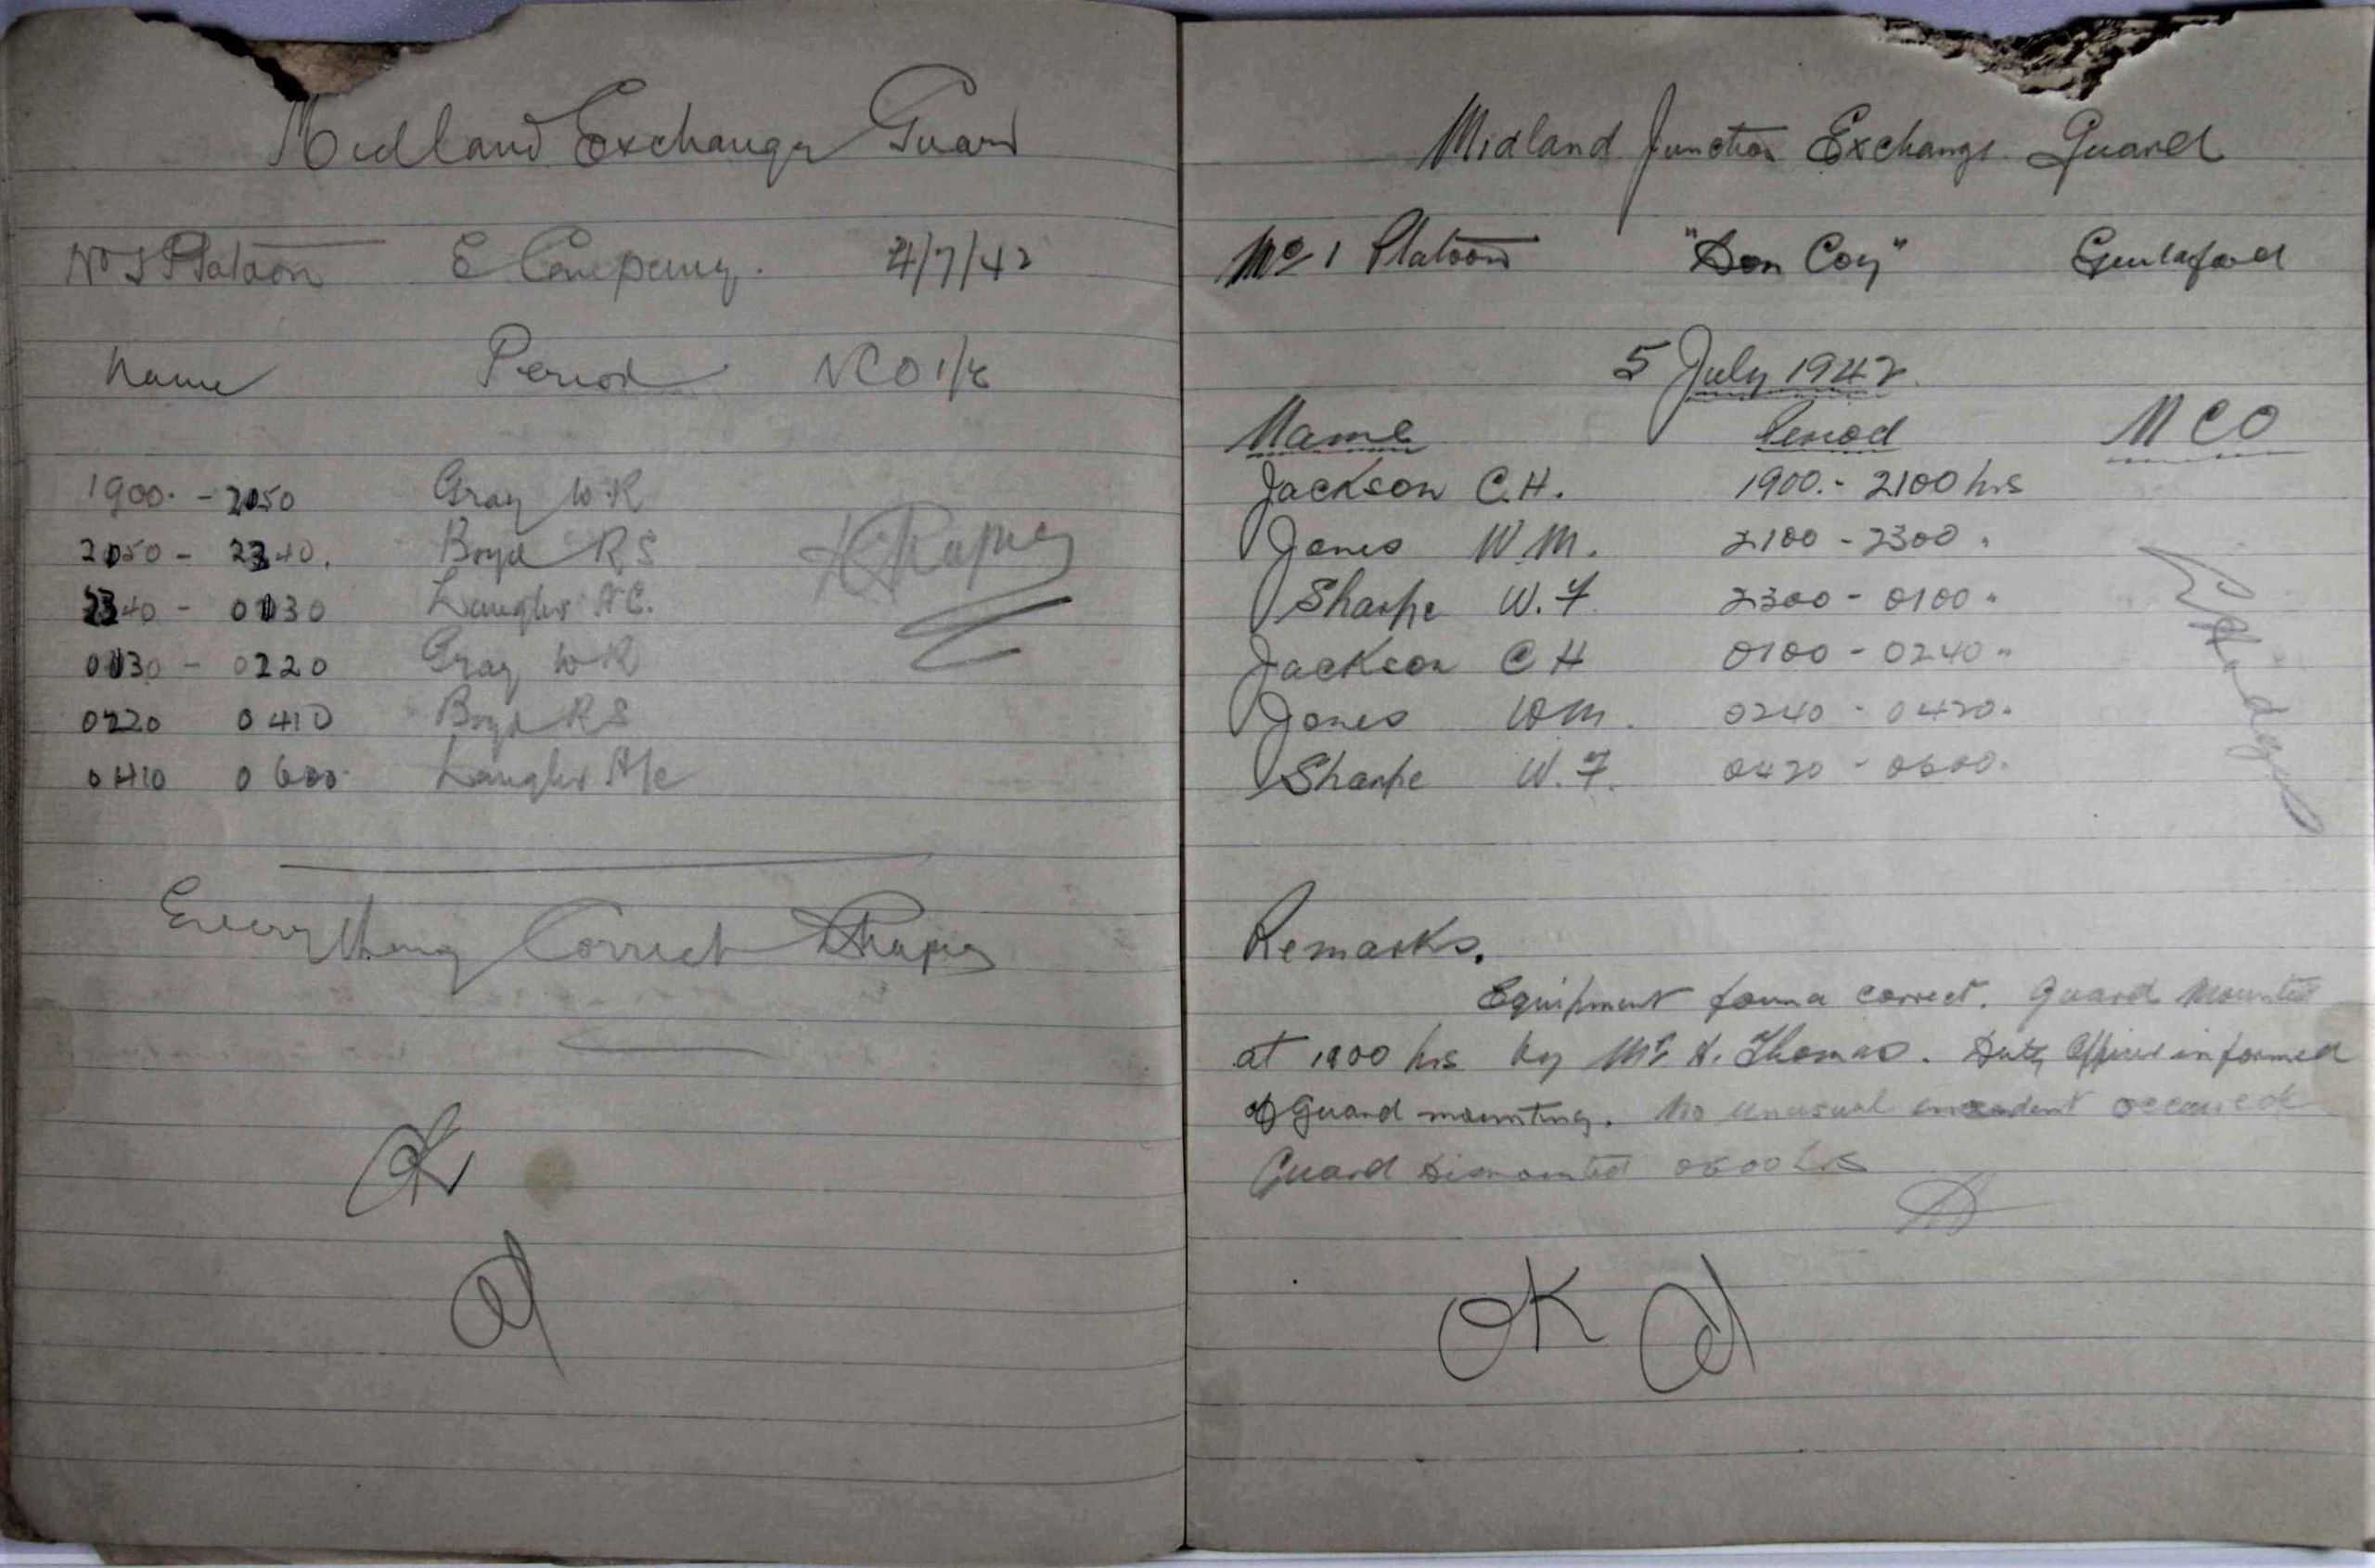 Midland Exchange Guard
Platoon E Company. 4/7/42
Name Period NCO i/c
1900. - 2050 Gray W.K
2050 - 2240. Boyd R S
2340 - 0130 Langler
0030 - 0220 Gray W K
0220 0410 Boyd R S
0410 0600 Langler
Everything Correct
OK
Midland Junction Exchange Guard
No 1 Platoon "Don Coy" Guildford
5 July 1942.
Name Period NCO
Jackson C.H. 1900.- 2100 hrs
Jones W.M. 2100 - 2300 "
Sharpe W.F. 2300 - 0100 "
Jackson C H 0100 - 0240 "
Jones W M. 0240 - 0420 "
Sharpe W.F. 0420 - 0600 "
Remarks.
Equipment found correct. Guard Mounted
at 1900 hrs by Mr. H. Thomas. Duty Officer informed
of guard mounting. No unusual incident occurred
Guard dismounted 0600 hrs
OK